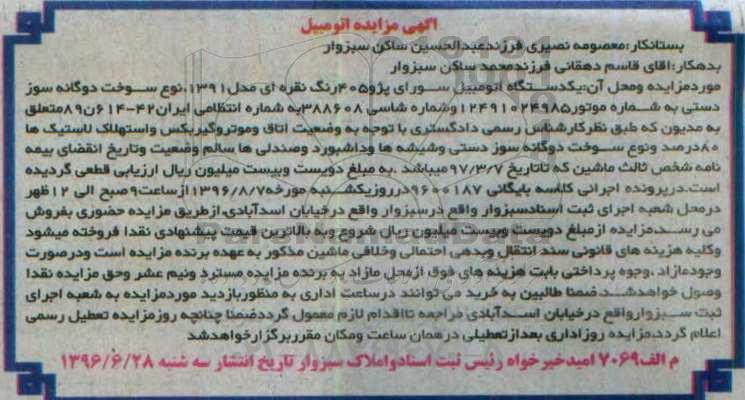 آگهی مزایده اتومبیل
بستانکار:معصومه نصیری فرزندعبدالحسین ساکن سبزوار
بدهکار:اقای قاسم دهقانی فرزندمحمد ساکن سبزوار
موردمزایده ومحل آن:یکدستگاه اتومبیل سورای پژو۴۰۵رنگ نقره ای مدل۱۳۹۱،نوع سوخت دوگانه سوز
دستی به شماره موتور۱۲۴۹۱۰۲۴۹۸۵وشماره شاسی ۳۸۸۶۰۸به شماره انتظامی ایران۴۲-۶۱۴ن۸۹متعلق
به مدیون که طبق نظرکارشناس رسمی دادگستری با توجه به وضعیت اتاق وموتروگیربکس واستهلاک لاستیک ها
۸۰درصد ونوع سوخت دوگانه سوز دستی وشیشه ها وداشبورد وصندلی ها سالم وضعیت وتاریخ انقضای بیمه
نامه شخص ثالث ماشین که تاتاریخ ۹۷/۳/۷میباشد .به مبلغ دویست وبیست میلیون ریال ارزیابی قطعی گردیده
است.درپرونده اجرائی کلاسه بایگانی ۹۶۰۰۱۸۷درروزیکشنبه مورخه۱۳۹۶/۸/۷ازساعت۹صبح الی ۱۲ظهر
درمحل شعبه اجرای ثبت اسنادسبزوار واقع درسبزوار واقع درخیابان اسدآبادی،ازطریق مزایده حضوری بفروش
می رسد.مزایده ازمبلغ دویست وبیست میلیون ریال شروع وبه بالاترین قیمت پیشنهادی نقدا فروخته میشود
وکلیه هزینه های قانونی سند انتقال وبدهی احتمالی وخلافی ماشین مذکور به عهده برنده مزایده است ودرصورت
وجودمازاد ،وجوه پرداختی بابت هزینه های فوق ازمحل مازاد به برنده مزایده مسترد ونیم عشر وحق مزایده نقدا
وصول خواهدشد.ضمنا طالبین به خرید می توانند درساعت اداری به منظوربازدید موردمزایده به شعبه اجرای
ثبت سبزوارواقع درخیابان اسدآبادی مراجعه تااقدام لازم معمول گرددضمنا چنانچه روزمزایده تعطیل رسمی
اعلام گردد،مزایده روزاداری بعدازتعطیلی درهمان ساعت ومکان مقرربرگزارخواهدشد
م الف۷۰۶۹ امیدخیرخواه رئیس ثبت اسنادواملاک سبزوار تاریخ انتشار سه شنبه ۱۳۹۶/۶/۲۸